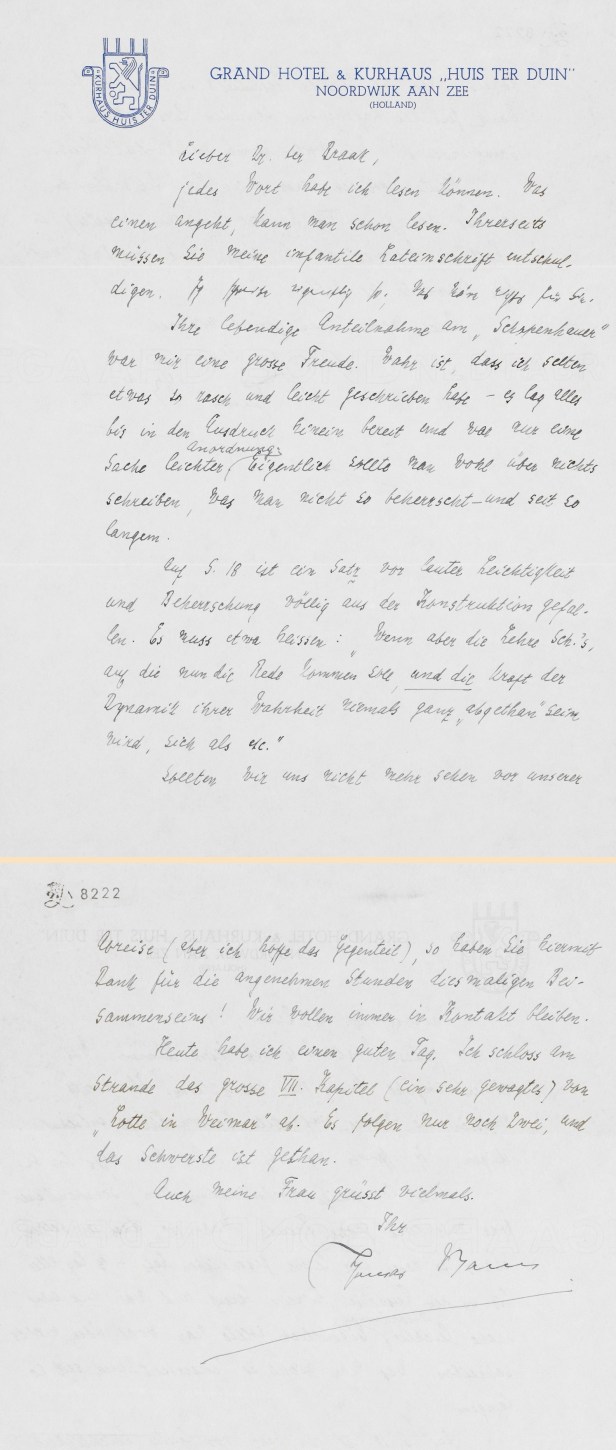 KURHAUS HUIS TER DUIN
GRAND HOTEL & KURHAUS „HUIS TER DUIN"
NOORDWIJK AAN ZEE
(HOLLAND)
Lieber Dr. ter Braak,
jedes Wort habe ich lesen können. Was
einen angeht, kann man schon lesen. Ihrerseits
müssen Sie meine infantile Lateinschrift entschul-
digen. Ich schreibe eigentlich so, das wäre nichts für Sie.
Ihre lebendige Anteilnahme am „Schopenhauer"
war mir eine grosse Freude. Wahr ist, dass ich selten
etwas so rasch und leicht geschrieben habe – es lag alles
bis in den Ausdruck hinein bereit und war nur eine
Anordnung.
Sache leichter Eigentlich sollte man wohl über nichts
schreiben, was man nicht so beherrscht – und seit so
langem.
Auf S. 18 ist ein Satz vor lauter Leichtigkeit
und Beherrschung völlig aus der Konstruktion gefal-
len. Es muss etwa heissen: „Wenn aber die Lehre Sch.'s,
auf die nun die Rede kommen soll, und die kraft der
Dynamik ihrer Wahrheit niemals ganz „abgethan" sein
wird, sich als etc."
Sollten wir uns nicht mehr sehen vor unserer
8222
Abreise (aber ich hoffe das Gegenteil), so haben Sie hiermit
Dank für die angenehmen Stunden diesmaligen Bei-
sammenseins! Wir wollen immer in Kontakt bleiben.
Heute habe ich einen guten Tag. Ich schloss am
Strande das grosse VII. Kapitel (ein sehr gewagtes) von
„Lotte in Weimar" ab. Es folgen nur noch zwei, und
das Schwerste ist gethan.
Auch meine Frau grüsst vielmals.
Ihr
Thomas Mann